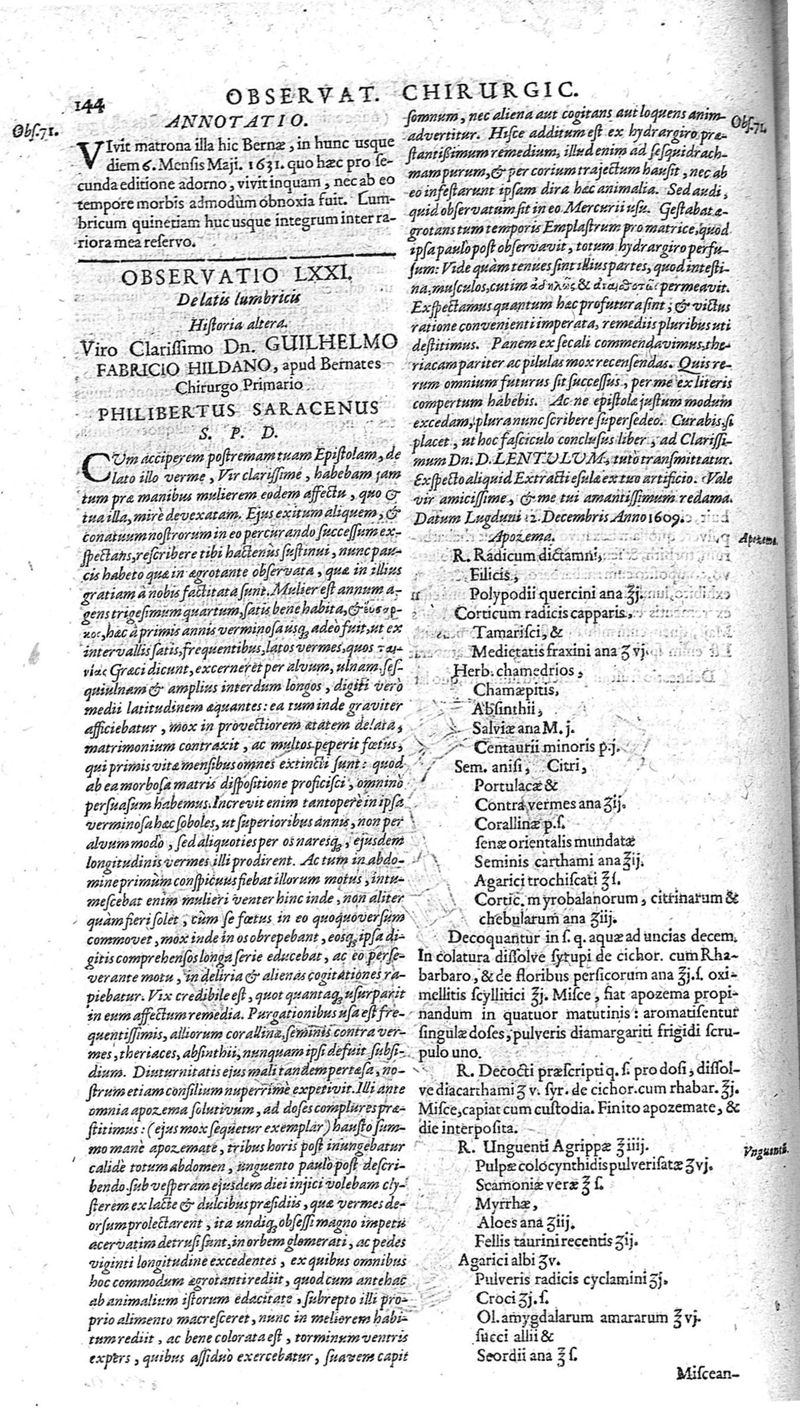 144
OBSERVAT. CHIRURGIC.
Obs. 71.
ANNOTATIO.
VIvit matrona illa hic Bernæ, in hunc usque
diem 6. Mensis Maji. 1631. quo hæc pro se-
cunda editione adorno, vivit inquam, nec ab eo
tempore morbis admodùm obnoxia fuit. Lum-
bricum quinetiam huc usque integrum inter ra-
riora mea reservo.
OBSERVATIO LXXI.
De latis lumbricis
Historia altera.
Viro Clarissimo Dn. GUILHELMO
FABRICIO HILDANO, apud Bernates
Chirurgo Primario
PHILIBERTUS SARACENUS
S. P. D.
CUm acciperem postremam tuam Epistolam, de
lato illo verme, Vir clarissime, habebam jam
tum præ manibus mulierem eodem affectu, quo &
tua illa, mirè devexatam. Ejus exitum aliquem, &
conatuum nostrorum in eo percurando successum ex-
spectans, rescribere tibi hactenùs sustinui, nunc pau-
cis habeto quæ in ægrotante observata, quæ in illius
gratiam à nobis factitata sunt. Mulier est annum a-
gens trigesimum quartum, satis bene habita, & εὔσαρ-
κος, hæc à primis annis verminosa usq; adeo fuit, ut ex
intervallis satis, frequentibus, latos vermes, quos ται-
νίας Græci dicunt, excerneret per alvum, ulnam, ses-
quiulnam & amplius interdum longos, digiti verò
medii latitudinem æquantes: ea tum inde graviter
afficiebatur, mox in provectiorem ætatem delata,
matrimonium contraxit, ac multos peperit fœtus,
qui primis vitæ mensibus omnes extincti sunt: quod
ab ea morbosa matris dispositione proficisci, omninò
persuasum habemus. Increvit enim tantoperè in ipsa
verminosa hæc soboles, ut superioribus annis, non per
alvum modò, sed aliquoties per os naresq;, ejusdem
longitudinis vermes illi prodirent. Ac tum in abdo-
mine primùm conspicuus fiebat illorum motus, intu-
mescebat enim mulieri venter hinc inde, non aliter
quàm fieri solet, cùm se fœtus in eo quoquoversùm
commovet, mox inde in os obrepebant, eosq; ipsa di-
gitis comprehensos longa serie educebat, ac eo perse-
verante motu, in deliria & alienas cogitationes ra-
piebatur. Vix credibile est, quot quantaq; usurparit
in eum affectum remedia. Purgationibus usa est fre-
quentissimis, alliorum corallinæ, seminis contra ver-
mes, theriaces, absinthii, nunquam ipsi defuit subsi-
dium. Diuturnitatis ejus mali tandem pertæsa, no-
strum etiam consilium nuperrimè expetivit. Illi ante
omnia apozema solutivum, ad doses complures præ-
stitimus: (ejus mox sequetur exemplar) hausto sum-
mo mane apozemate, tribus horis pòst inungebatur
calidè totum abdomen, unguento paulò pòst descri-
bendo. sub vesperam ejusdem diei injici volebam cly-
sterem ex lacte & dulcibus præsidiis, quæ vermes de-
orsum prolectarent, ita undiq; obsessi magno impetu
acervatim detrusi sunt, in orbem glomerati, ac pedes
viginti longitudine excedentes, ex quibus omnibus
hoc commodum ægrotanti rediit, quod cum antehac
ab animalium istorum edacitate, subrepto illi pro-
prio alimento macresceret, nunc in meliorem habi-
tum rediit, ac bene colorata est, torminum ventris
expers, quibus assiduò exercebatur, suavem capit
somnum, nec aliena aut cogitans aut loquens anim-
advertitur. Hisce additum est ex hydrargiro præ-
stantissimum remedium, illud enim ad sesquidrach-
mam purum, & per corium trajectum hausit, nec ab
eo infestarunt ipsam dira hæc animalia. Sed audi,
quid observatum sit in eo Mercurii usu. Gestabat æ-
grotans tum temporis Emplastrum pro matrice, quod
ipsa paulo post observavit, totum hydrargiro perfu-
sum: Vide quàm tenues sint illius partes, quod intesti-
na, musculos, cutim ἀδήλως & permeavit.
Exspectamus quantum hæc profutura sint, & victus
ratione convenienti imperata, remediis pluribus uti
destitimus. Panem ex secali commendavimus, the-
riacam pariter ac pilulas mox recensendas. Quis re-
rum omnium futurus sit successus, per me ex literis
compertum habebis. Ac ne epistola justum modum
excedam, plura nunc scribere supersedeo. Curabis, si
placet, ut hoc fasciculo conclusus liber, ad Clarissi-
mum Dn. D. LENTULUM, tutò transmittatur.
Exspecto aliquid Extracti esulæ ex tuo artificio. Vale
vir amicissime, & me tui amantissimum redama.
Datum Lugduni 12. Decembris Anno 1609.
Obs. 71.
Apozema.
Apozema.
R. Radicum dictamni,
Filicis,
Polypodii quercini ana ℥j.
Corticum radicis capparis,
Tamarisci, &
Medietatis fraxini ana ʒ vj.
Herb. chamedrios,
Chamæpitis,
Absinthii,
Salviæ ana M. j.
Centaurii minoris p. j.
Sem. anisi, Citri,
Portulacæ &
Contra vermes ana ʒij.
Corallinæ p. s.
senæ orientalis mundatæ
Seminis carthami ana ℥ij.
Agarici trochiscati ℥ s.
Cortic. myrobalanorum, citrinarum &
chebularum ana ʒiij.
Decoquantur in s. q. aquæ ad uncias decem.
In colatura dissolve syrupi de cichor. cum Rha-
barbaro, & de floribus persicorum ana ℥j. s. oxi-
mellitis scyllitici ℥j. Misce, fiat apozema propi-
nandum in quatuor matutinis: aromatisentur
singulæ doses, pulveris diamargariti frigidi scru-
pulo uno.
R. Decocti præscripti q. s. pro dosi, dissol-
ve diacarthami ʒ v. syr. de cichor. cum rhabar. ℥j.
Misce, capiat cum custodia. Finito apozemate, &
die interposita.
Unguentũ.
R. Unguenti Agrippæ ℥iiij.
Pulpæ colocynthidis pulverisatæ ʒvj.
Scamoniæ veræ ℥ s.
Myrrhæ,
Aloes ana ʒiij.
Fellis taurini recentis ℥ij.
Agarici albi ʒv.
Pulveris radicis cyclamini ℥j.
Croci ʒj. s.
Ol. amygdalarum amararum ℥ vj.
succi allii &
Scordii ana ℥ s.
Miscean-